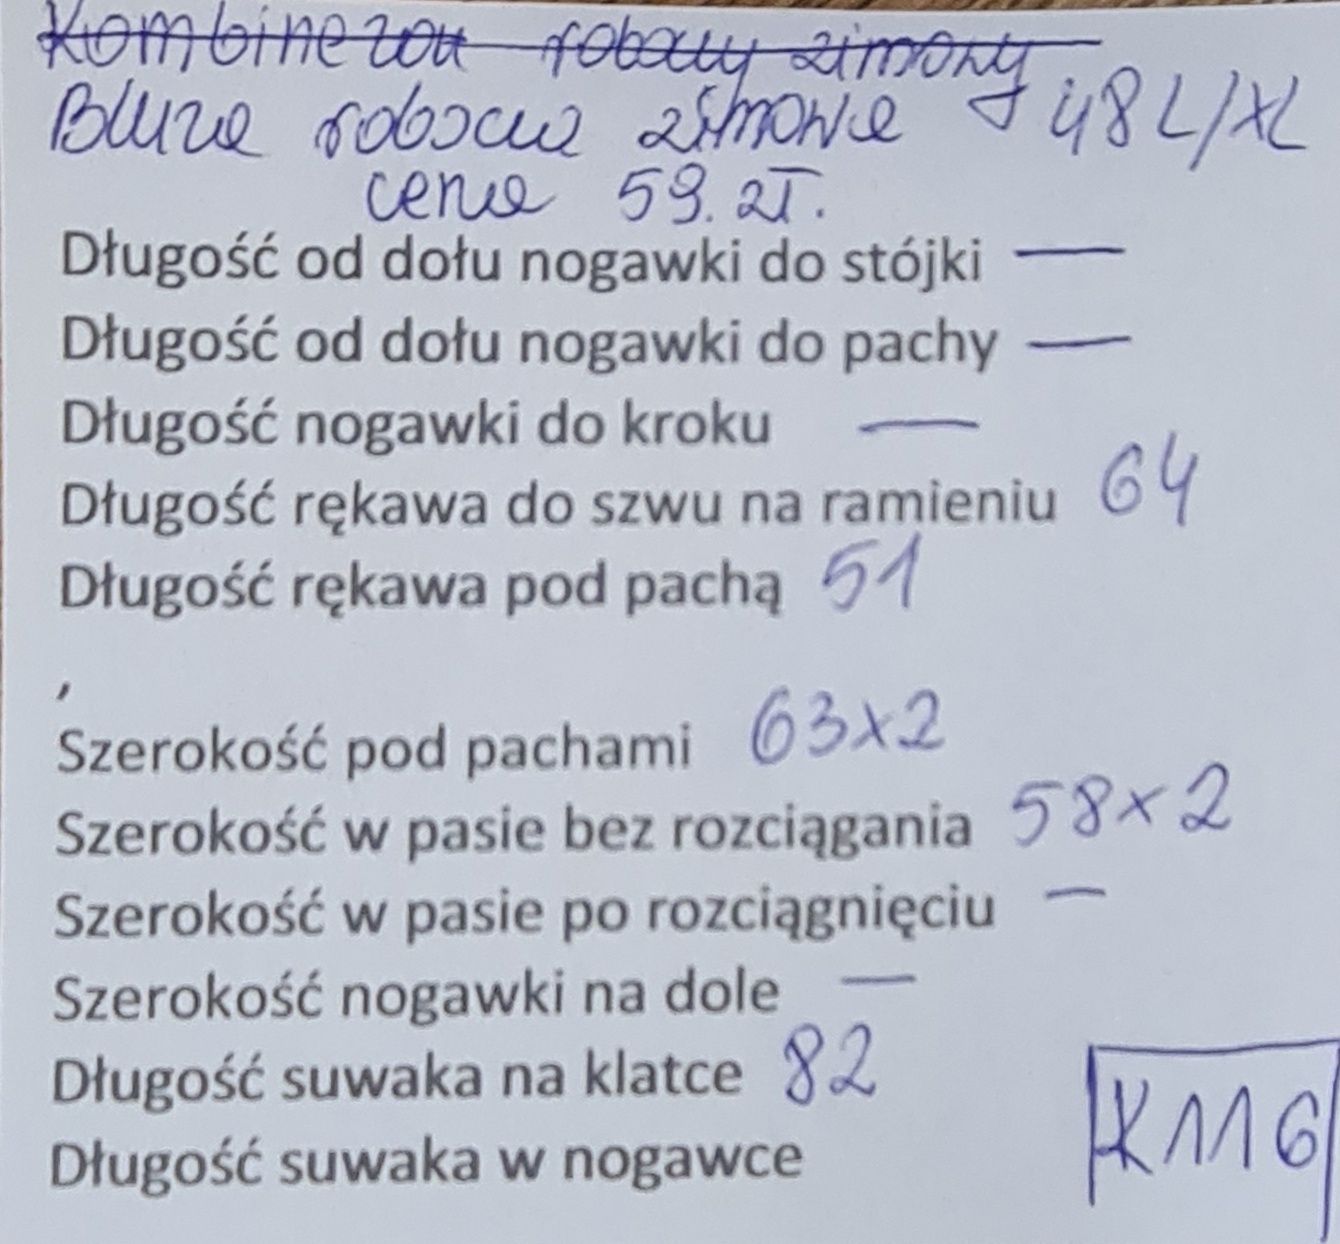 Kombinezon roboczy zimowy
Bluza robocza zimowa 48 L/XL
cena 59. zł.
Długość od dołu nogawki do stójki —
Długość od dołu nogawki do pachy —
Długość nogawki do kroku —
Długość rękawa do szwu na ramieniu 64
Długość rękawa pod pachą 51
,
Szerokość pod pachami 63x2
Szerokość w pasie bez rozciągania 58x2
Szerokość w pasie po rozciągnięciu —
Szerokość nogawki na dole —
Długość suwaka na klatce 82
Długość suwaka w nogawce
K116